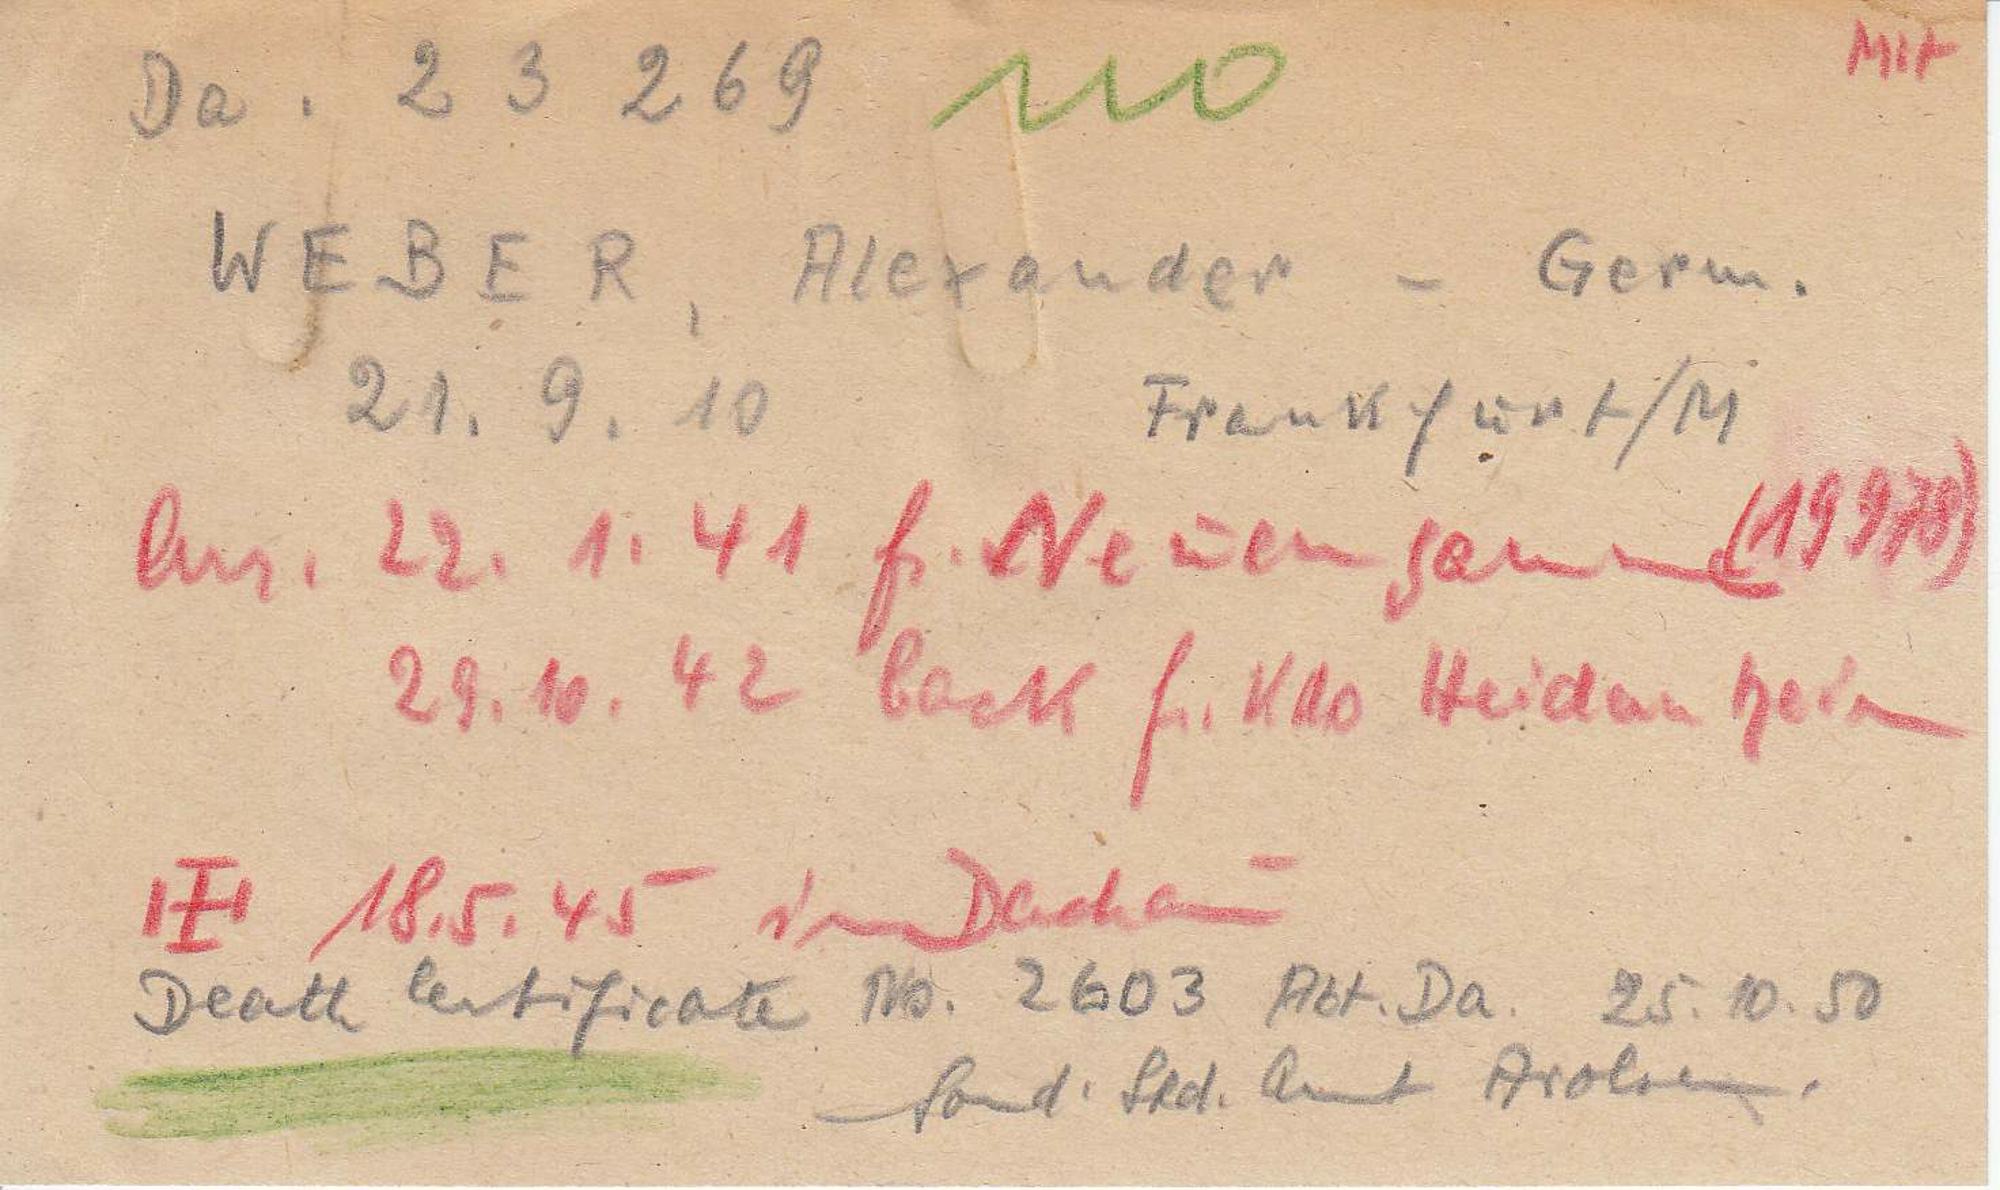 Da. 23269 110 Mit
WEBER, Alexander - Germ.
21. 9. 10 Frankfurt/M
Arr. 22. 1. 41 fr. Neuengamme (19978)
29. 10. 42 back fr. Kdo Heidenheim
18.5.45 in Dachau
Death Certificate No. 2603 Abt. Da. 25.10.50
Sond. Std. Amt Arolsen.